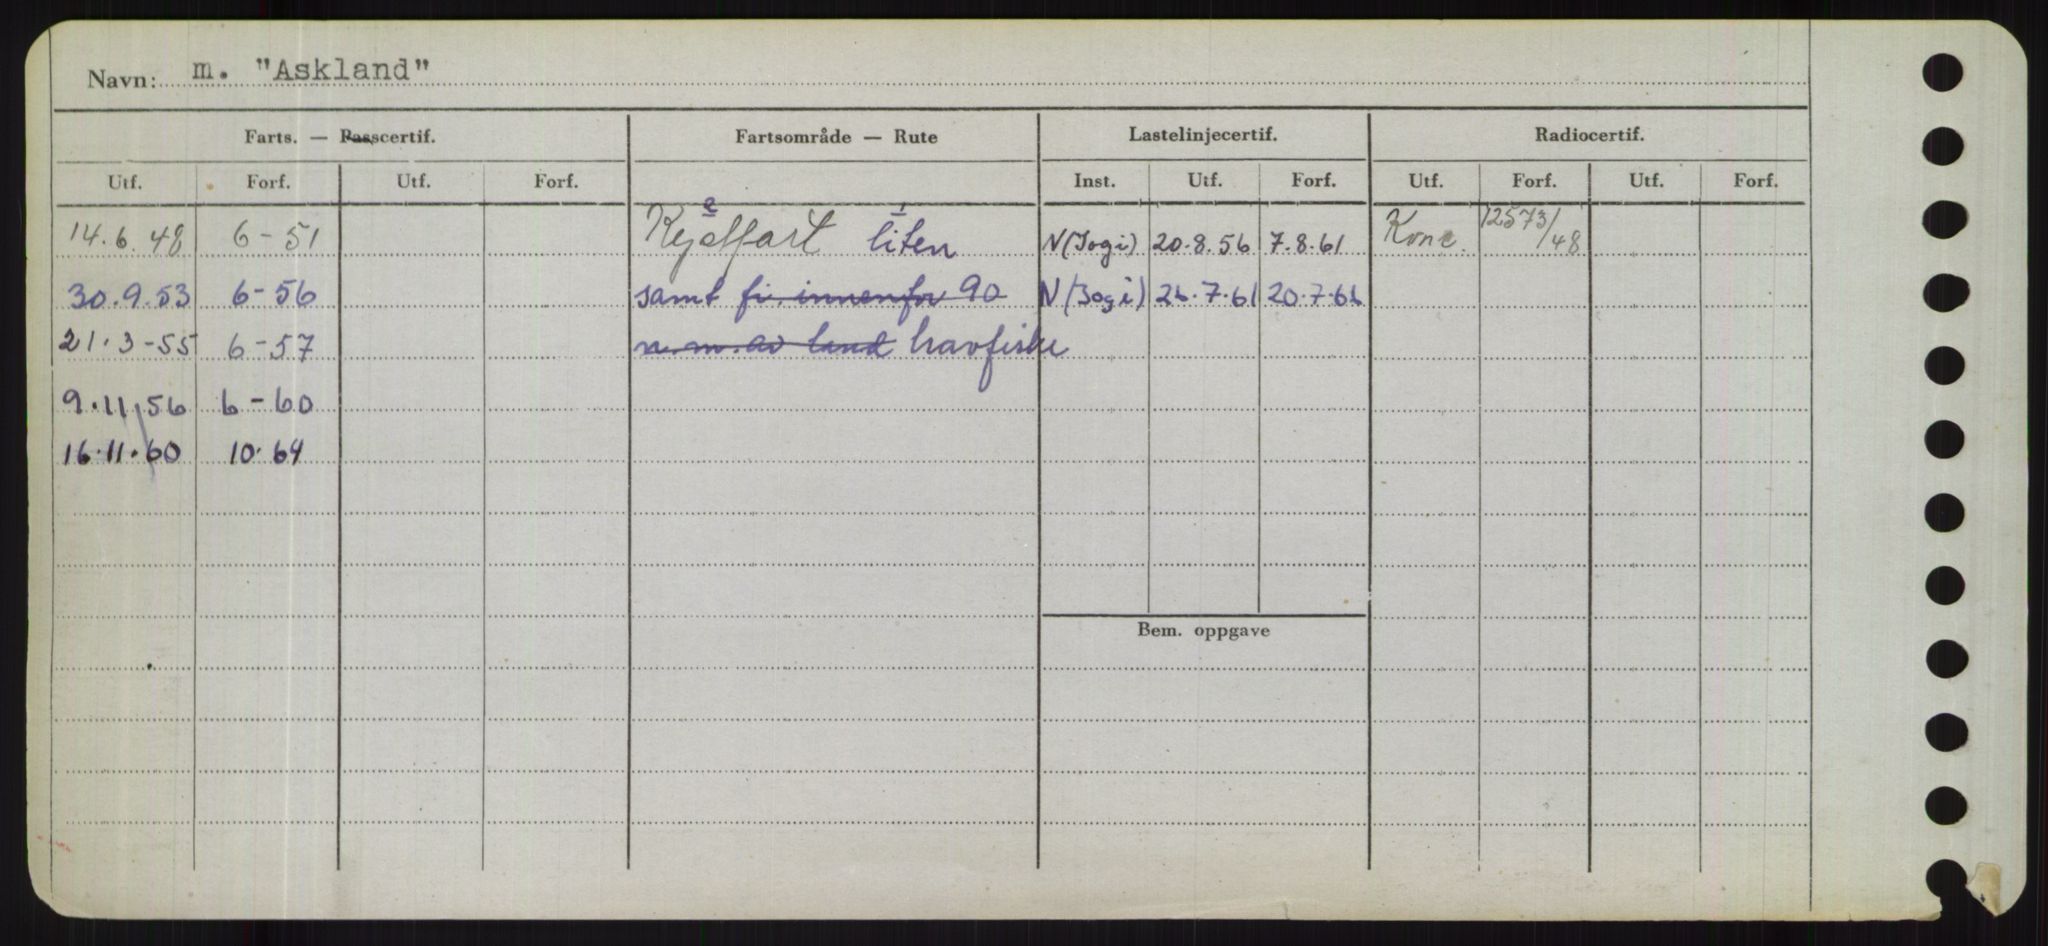 Navn: m. "Askland"
Farts. — Passcertif. Fartsområde — Rute Lastelinjecertif. Radiocertif.
Utf. Forf. Utf. Forf. Inst. Utf. Forf. Utf. Forf. Utf. Forf.
14.6.48 6-51 liten N(Jogi) 20.8.56 7.8.61 Konc. 12573/48
30.9.53 6-56 samt fi. innenfor 90 N(Jogi) 26.7.61 20.7.66
21.3-55 6-57 n.m. av land havfiske
9.11.56 6-60
16.11.60 10.64
Bem. oppgave